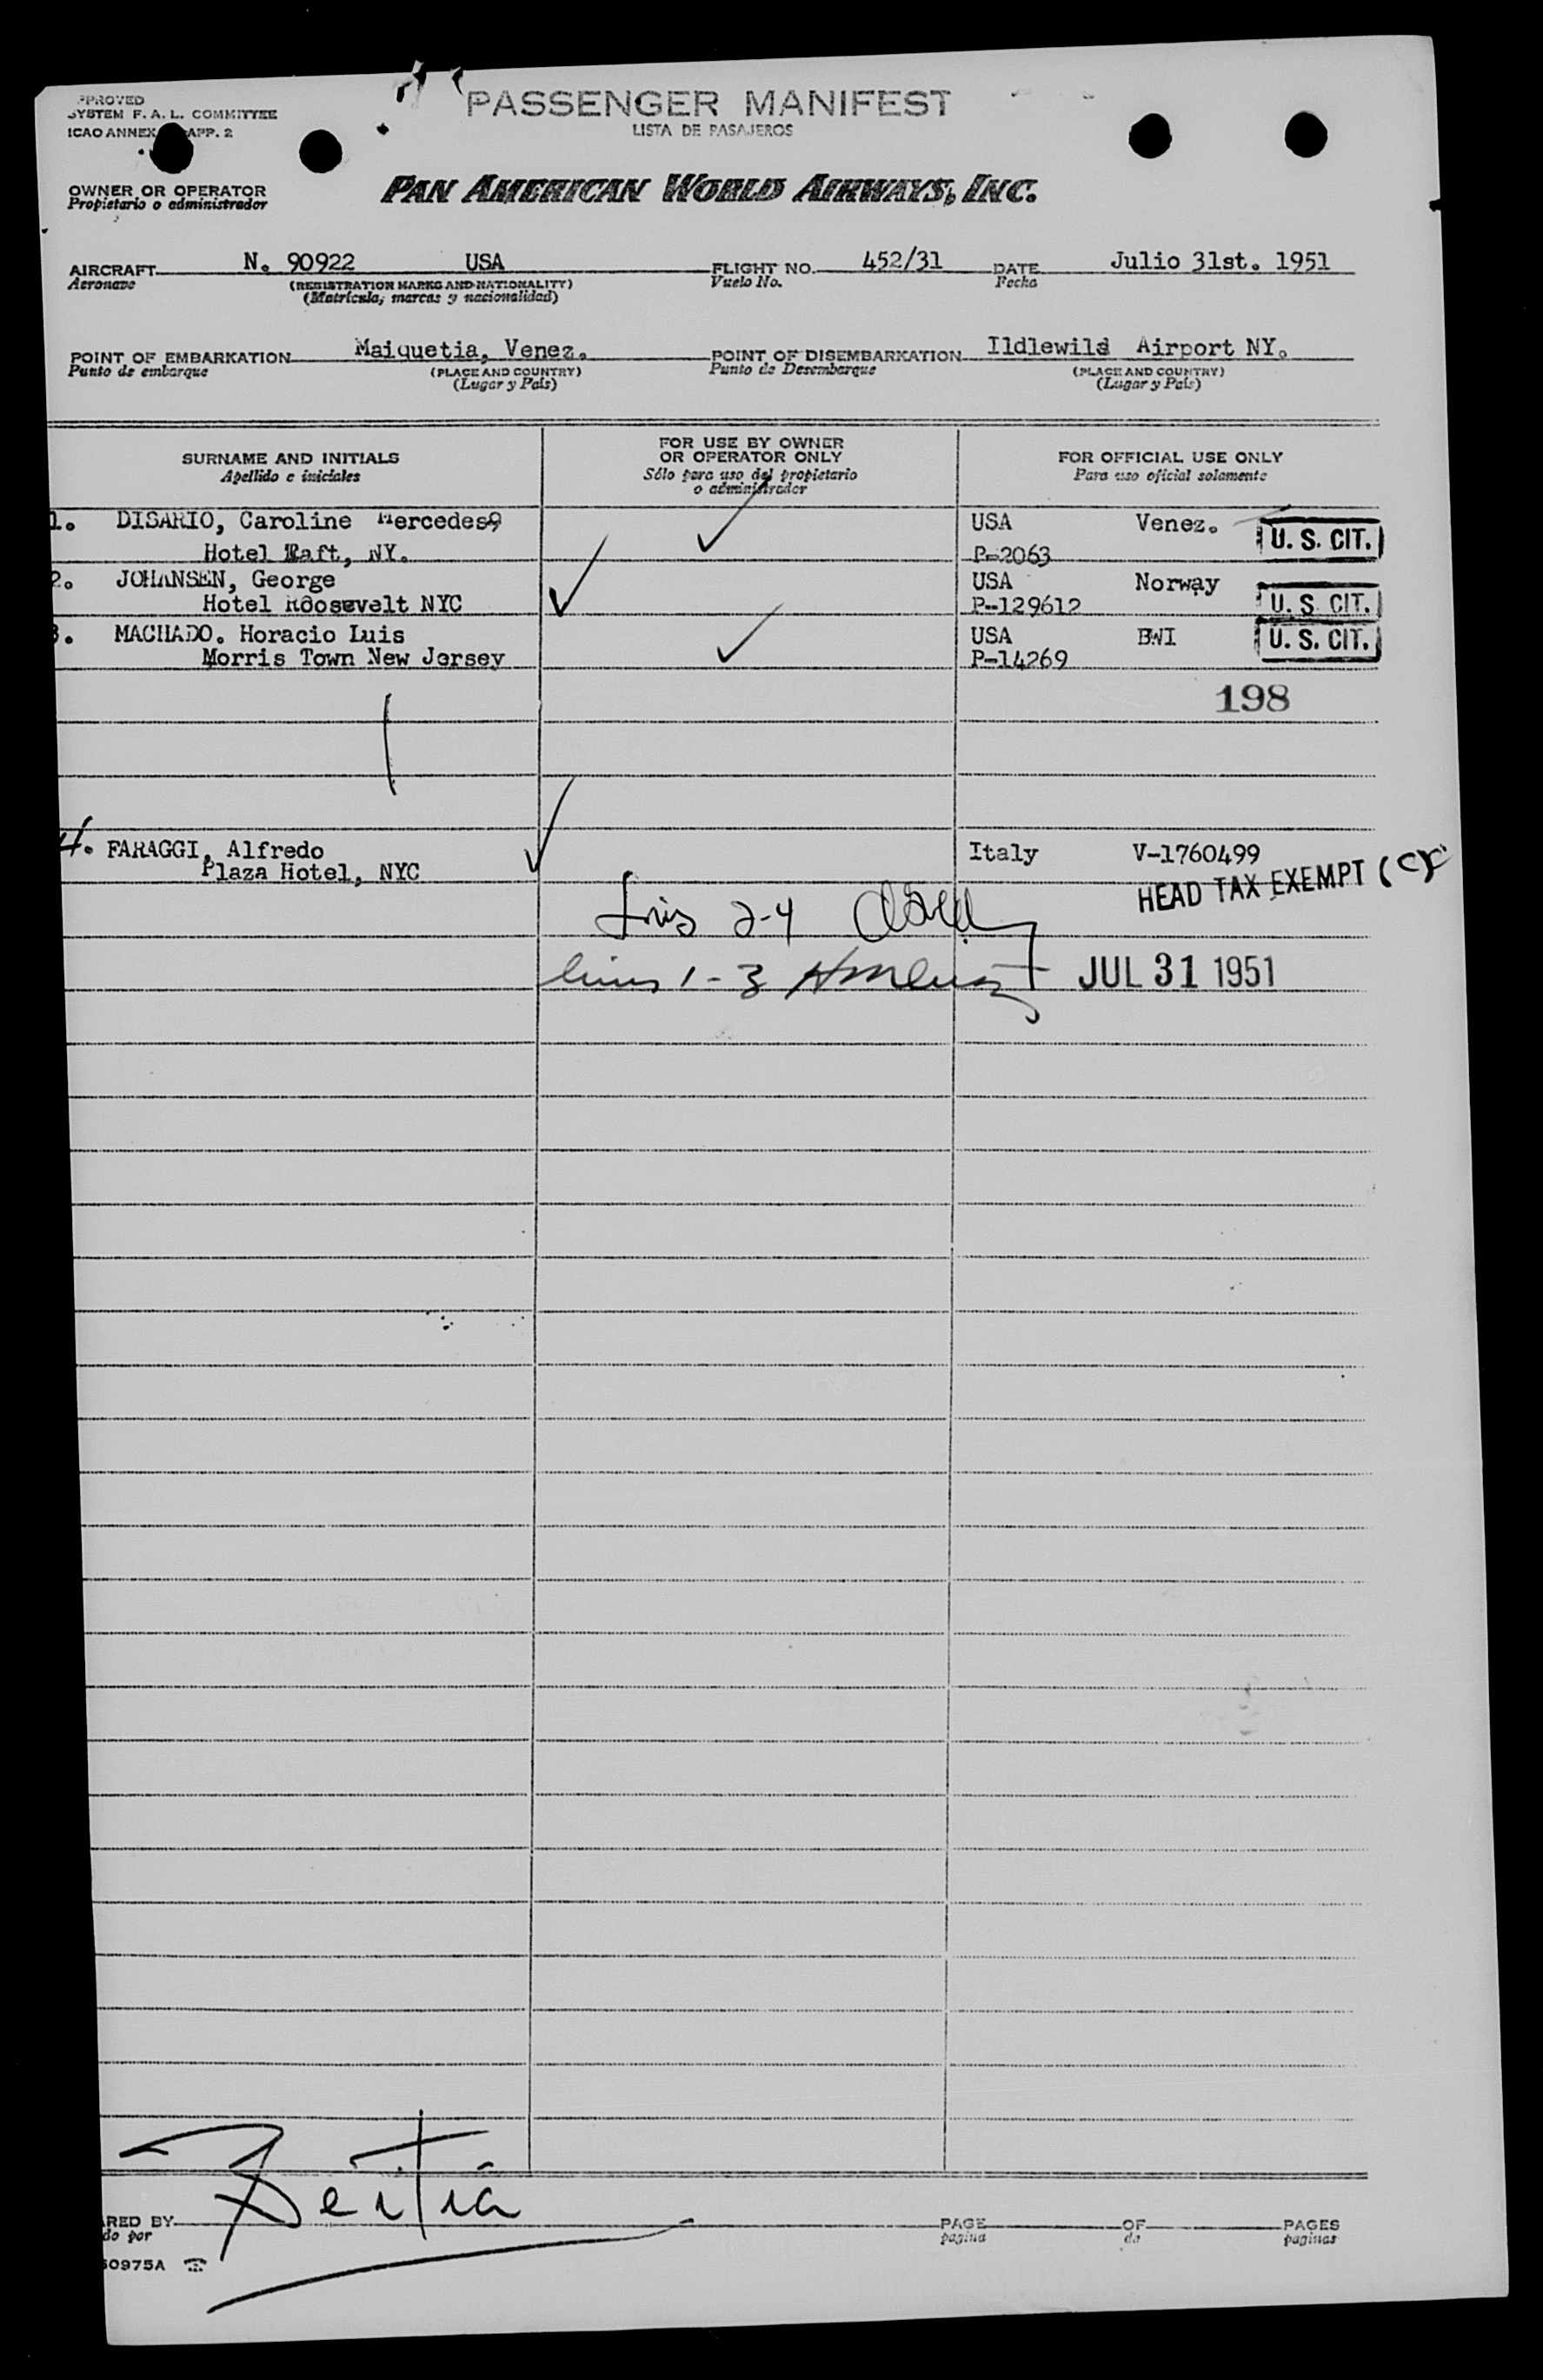 PASSENGER MANIFEST
LISTA DE PASAJEROS
SYSTEM F. A. L. COMMITTEE
ICAO ANNEX APP. 2
OWNER OR OPERATOR
Propietario o administrador
PAN AMERICAN WORLD AIRWAYS, INC.
AIRCRAFT N. 90922 USA FLIGHT NO. 452/31 DATE Julio 31st. 1951
Aeronave (REGISTRATION MARKS AND NATIONALITY) Vuelo No. Fecha
(Matrícula, marcas y nacionalidad)
POINT OF EMBARKATION Maiquetia, Venez. POINT OF DISEMBARKATION Ildlewild Airport NY.
Punto de embarque (PLACE AND COUNTRY) Punto de Desembarque (PLACE AND COUNTRY)
(Lugar y País) (Lugar y País)
SURNAME AND INITIALS
Apellido e iniciales
FOR USE BY OWNER
OR OPERATOR ONLY
Sólo para uso del propietario
o administrador
FOR OFFICIAL USE ONLY
Para uso oficial solamente
1. DISARIO, Caroline Mercedes USA Venez. U. S. CIT.
Hotel Taft, NY. P-2063
2. JOHANSEN, George USA Norway
Hotel Roosevelt NYC P-129612 U. S. CIT.
3. MACHADO. Horacio Luis USA BWI U. S. CIT.
Morris Town New Jersey P-14269
198
4. FARAGGI, Alfredo Italy V-1760499
Plaza Hotel, NYC
HEAD TAX EXEMPT
2-4
lines 1-3 JUL 31 1951
RED BY PAGE OF PAGES
do por pagina de paginas
0975A